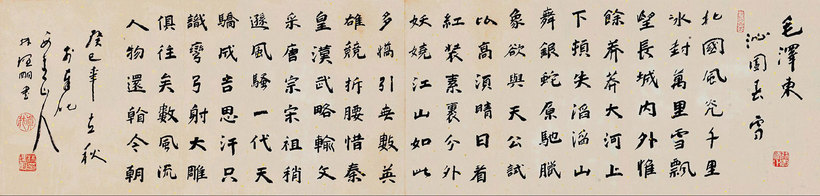 毛澤東
沁園春 雪
北國風光千里
冰封萬里雪飄
望長城內外惟
餘莽莽大河上
下頓失滔滔山
舞銀蛇原馳臘
象欲與天公試
比高須晴日看
紅裝素裹分外
妖嬈江山如此
多嬌引無數英
雄競折腰惜秦
皇漢武略輸文
采唐宗宋祖稍
遜風騷一代天
驕成吉思汗只
識彎弓射大雕
俱往矣數風流
人物還看今朝
癸巳年立秋